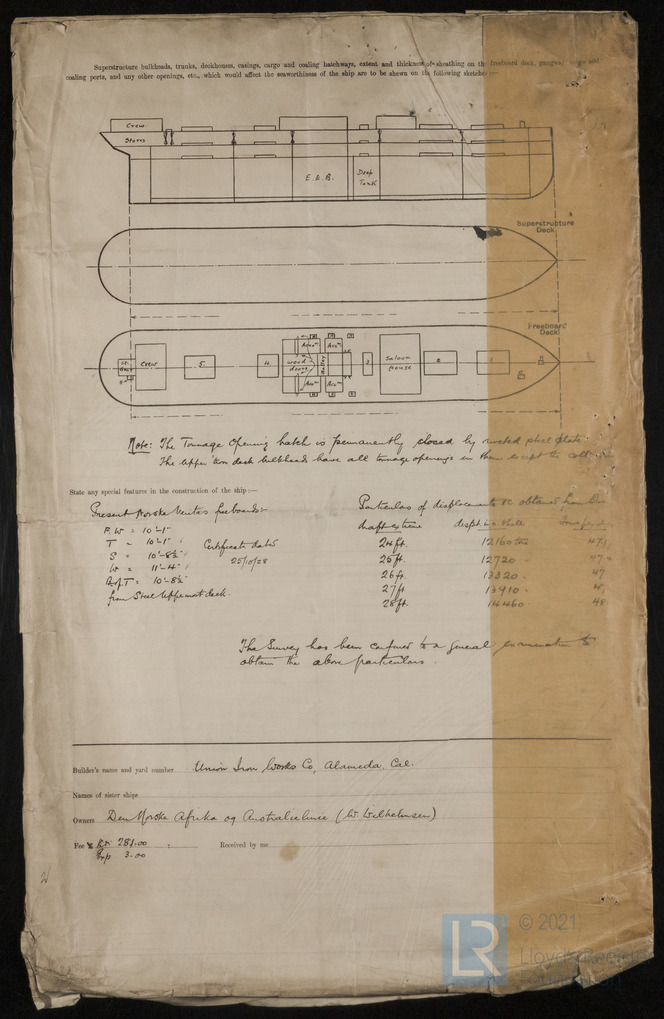 Superstructure bulkheads, trunks, deckhouses, casings, cargo and coaling hatchways, extent and thickness of sheathing on the freeboard deck, gangway, cargo and
coaling ports, and any other openings, etc., which would affect the seaworthiness of the ship are to be shewn on the following sketches:—
Crew
Stores
E. & B.
Deep
Tank
Superstructure
Deck
Freeboard
Deck
Crew
5
4
wood
doors
3
Saloon
House
2
1
Note: The Tonnage Opening hatch is permanently closed by riveted steel plate.
The upper 'tween deck bulkheads have all tonnage openings in them except the
State any special features in the construction of the ship:—
Present Norske Veritas freeboards:-
F.W = 10'-1"
T = 10'-1"
S = 10'-8½"
W = 11'-4"
= 10'-8½"
from Steel Uppermost deck.
Certificate dated
25/10/28
Particulars of displacements &c obtained from
draft extreme
24 ft. 12160 47
25 ft. 12720 47
26 ft. 13320 47
27 ft 13910
28 ft. 14460 48
The Survey has been confined to a general examination to
obtain the above particulars.
Builder's name and yard number Union Iron Works Co, Alameda, Cal.
Names of sister ships
Owners Den Norske Afrika og Australielinie (W. Wilhelmsen)
Fee £ Kr 281.00 : Received by me
Exp 3.00
LR
© 2021
Lloyd's Register
Foundation